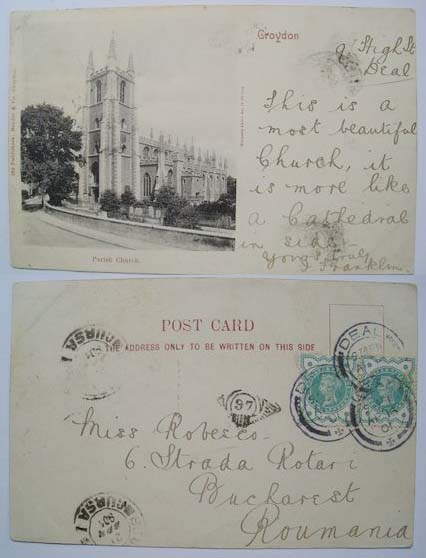 Croydon
9 High St
Deal
This is a
most beautiful
Church, it
is more like
a Cathedral
in side.
Yours truly
Franklin
Parish Church.
POST CARD
THE ADDRESS ONLY TO BE WRITTEN ON THIS SIDE
DEAL
97
Miss Robesco
6. Strada Rotari
Bucharest
Roumania